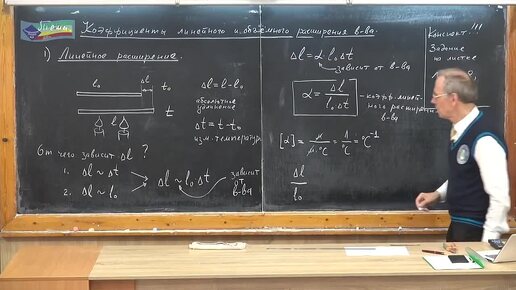 Коэффициенты линейного и объёмного расширения в-ва.
1) Линейное расширение.
l₀ Δl t₀
l t
Δl = l - l₀
абсолютное
удлинение
Δt = t - t₀
изм. температуры
От чего зависит Δl ?
1. Δl ~ Δt
2. Δl ~ l₀
Δl ~ l₀ Δt
зависит
от
в-ва
Δl = α l₀ Δt
зависит от в-ва
α = Δl / l₀ · Δt
- коэфф. линей-
ного расширения
в-ва
[α] = м / м · °C = 1 / °C = °C⁻¹
Δl / l₀
Конспект!!!
Задание
на листке